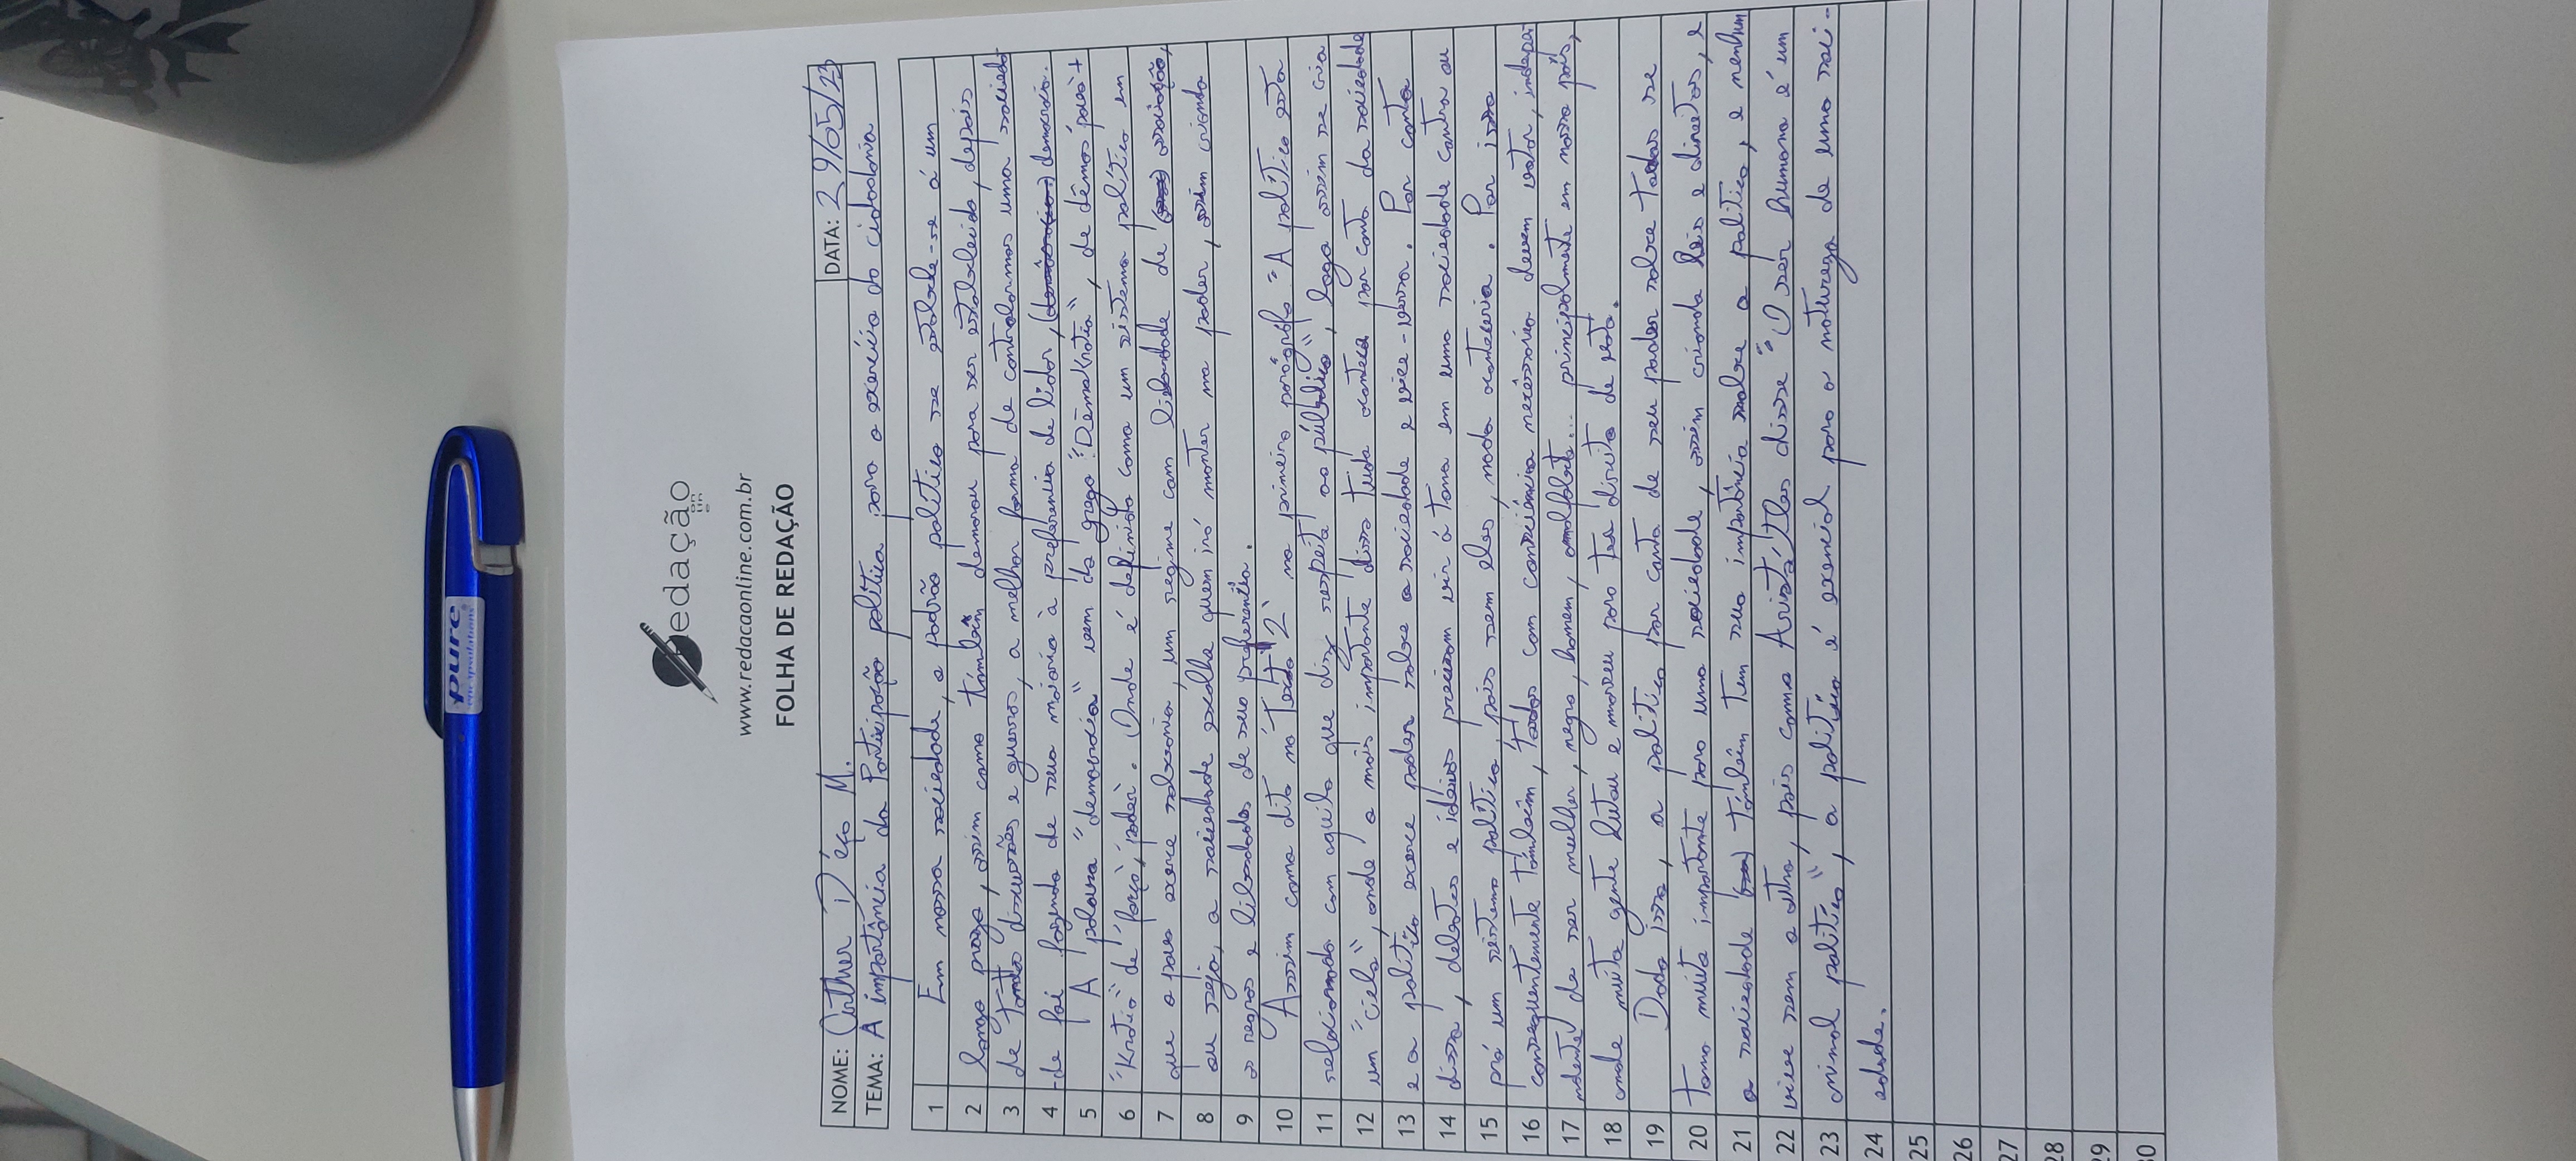 pure
encapsulations
Redação
on
lin
e
www.redacaonline.com.br
FOLHA DE REDAÇÃO
NOME: Arthur Diégo M. DATA: 29/05/23
TEMA: A importância da Participação política para o exercício da cidadania
1 Em nossa sociedade, o padrão político se estabele-se á um
2 longo prazo, assim como támbém demorou para ser estabeleido, depois
3 de tantas discussões e guerras, a melhor forma de controlarmos uma socieda
4 -de foi fazendo de sua maioria à preferencia de lider, democracia.
5 A palavra "democracia" vem da grego "Dēmokratia", de dêmos 'povo' +
6 "Kratia" de 'força', 'poder'. Onde é definida como um sistema político em
7 que o povo exerce soberania, um regime com liberdade de associação,
8 ou seja, a sociedade escolhe quem irá montar no poder, assim criando
9 as regras e liberdades de sua preferencia.
10 Assim como dito no 'Texto 2' no primeiro parágrafo "A política esta
11 relacionada com aquilo que diz respeito ao público", logo assim se cria
12 um "ciclo", onde o mais importante disso tudo acontece por conta da sociedade
13 e a política exerce poder sobre a sociedade e vice-versa. Por conta
14 disso, debates e idéias precisam vir á tona em uma sociedade contra ou
15 pró um sistema político, pois sem eles, nada aconteceria. Por isso
16 consequentemente támbém, todos com consciência necéssaria devem votar, indepe-
17 ndente de ser mulher, negro, homem, analfabeto... principalmente em nosso país,
18 onde muita gente lutou e morreu para ter direito de voto.
19 Dado isso, a política por conta de seu poder sobre todos se
20 torna muito importante para uma sociedade, assim criando leis e direitos, e
21 a sociedade támbém tem sua importância sobre a política, e nenhum
22 vive sem o outro, pois como Aristóteles disse "O ser humano é um
23 animal político", a política é exencial para a natureza de uma soci-
24 edade.
25
26
27
28
29
30